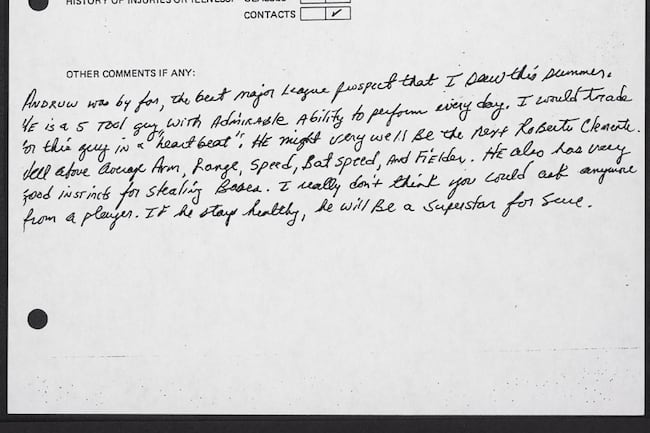 HISTORY OF INJURIES OR ILLNESS: GLASSES
CONTACTS ✓
OTHER COMMENTS IF ANY:
ANDRUW was by far, the best major League prospect that I saw this summer.
HE is a 5 Tool guy, with Admirable Ability to perform every day. I would trade
for this guy in a "heartbeat". HE might very well Be the next Roberto Clemente.
Well above Average Arm, Range, Speed, Bat Speed, And Fielder. HE also has very
good instincts for Stealing Bases. I really don't think you could ask anymore
from a player. If he stays healthy, he will Be a Superstar for Sure.